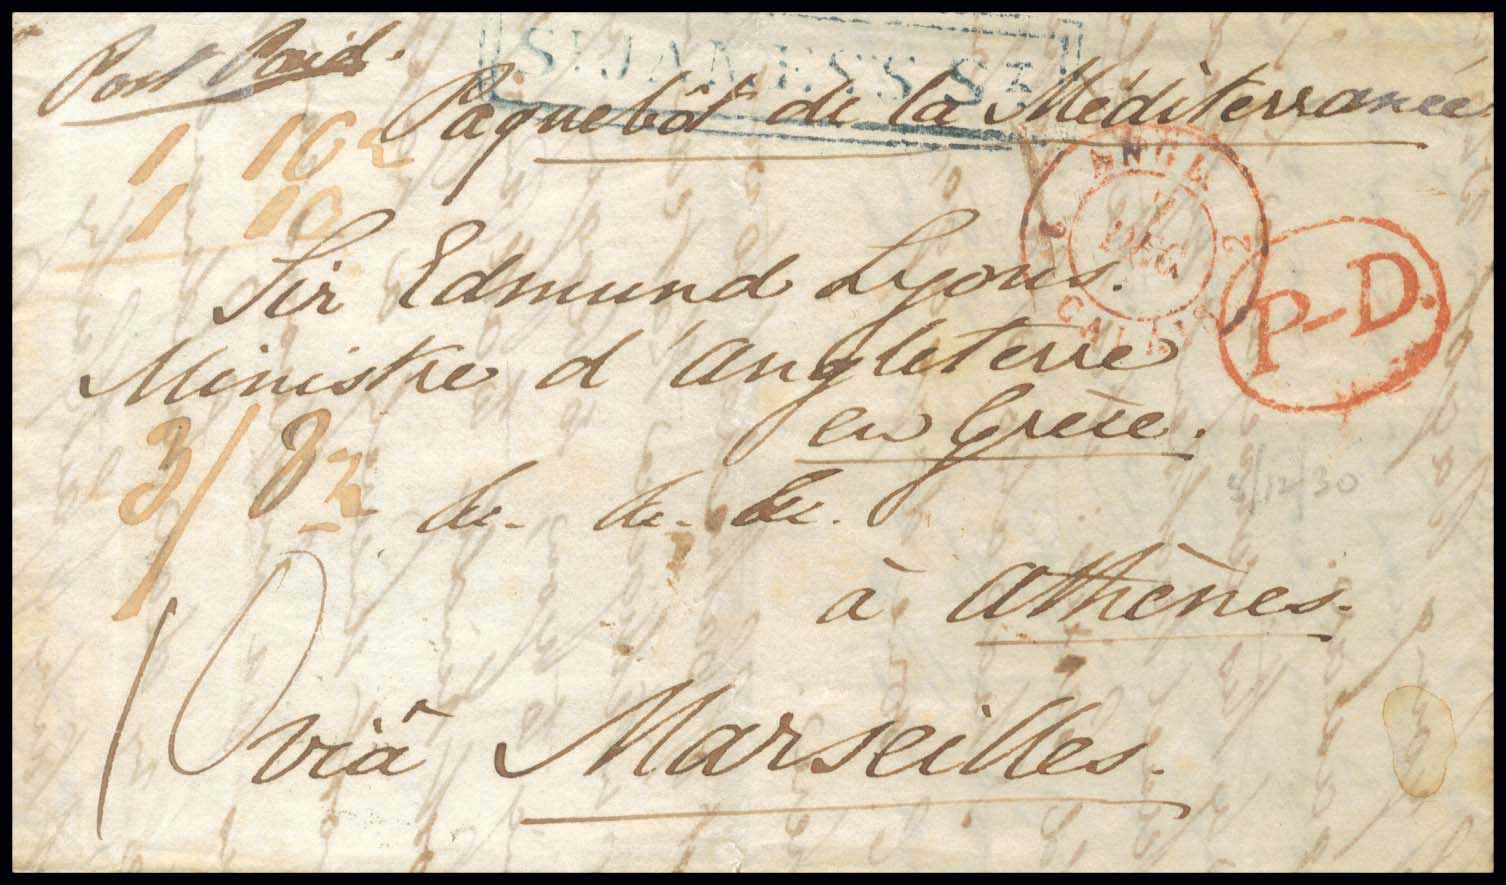 Post Paid.
ST JAMES'S St
Paquebôt de la Méditerranée
1 10
1 10
ANGL.
2 2
CALAIS
P-D.
Sir Edmund Lyons.
Ministre d'Angleterre
en Grèce.
3/8
&c. &c. &c.
3/12/30
à Athènes.
10
viâ Marseilles.